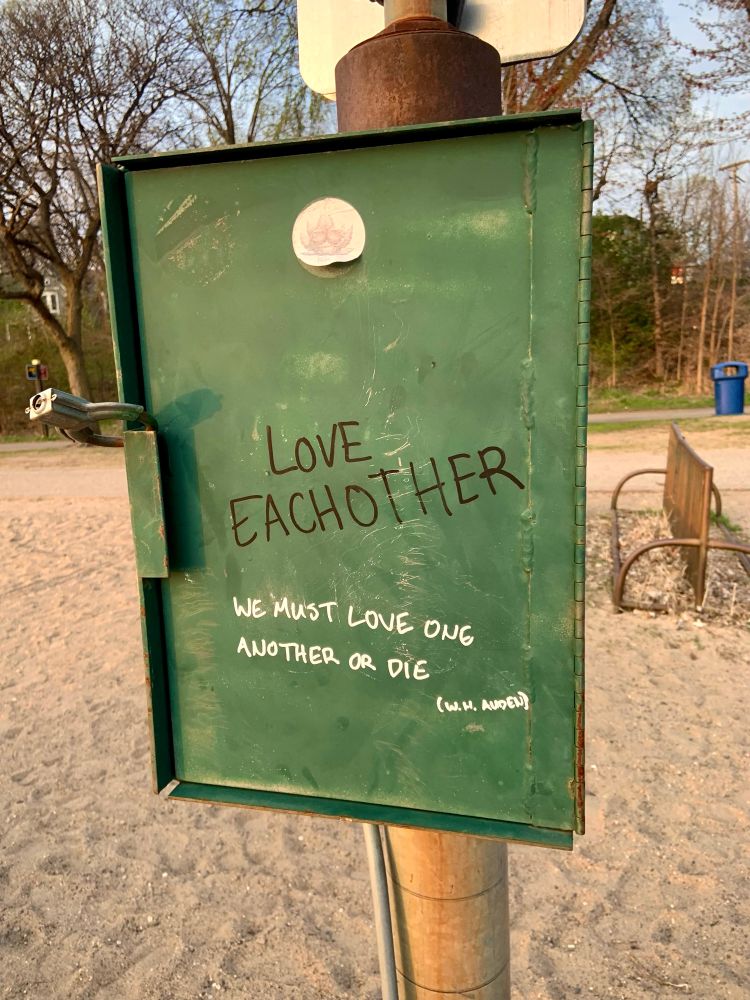 LOVE
EACHOTHER
WE MUST LOVE ONE
ANOTHER OR DIE
(W.H. AUDEN)